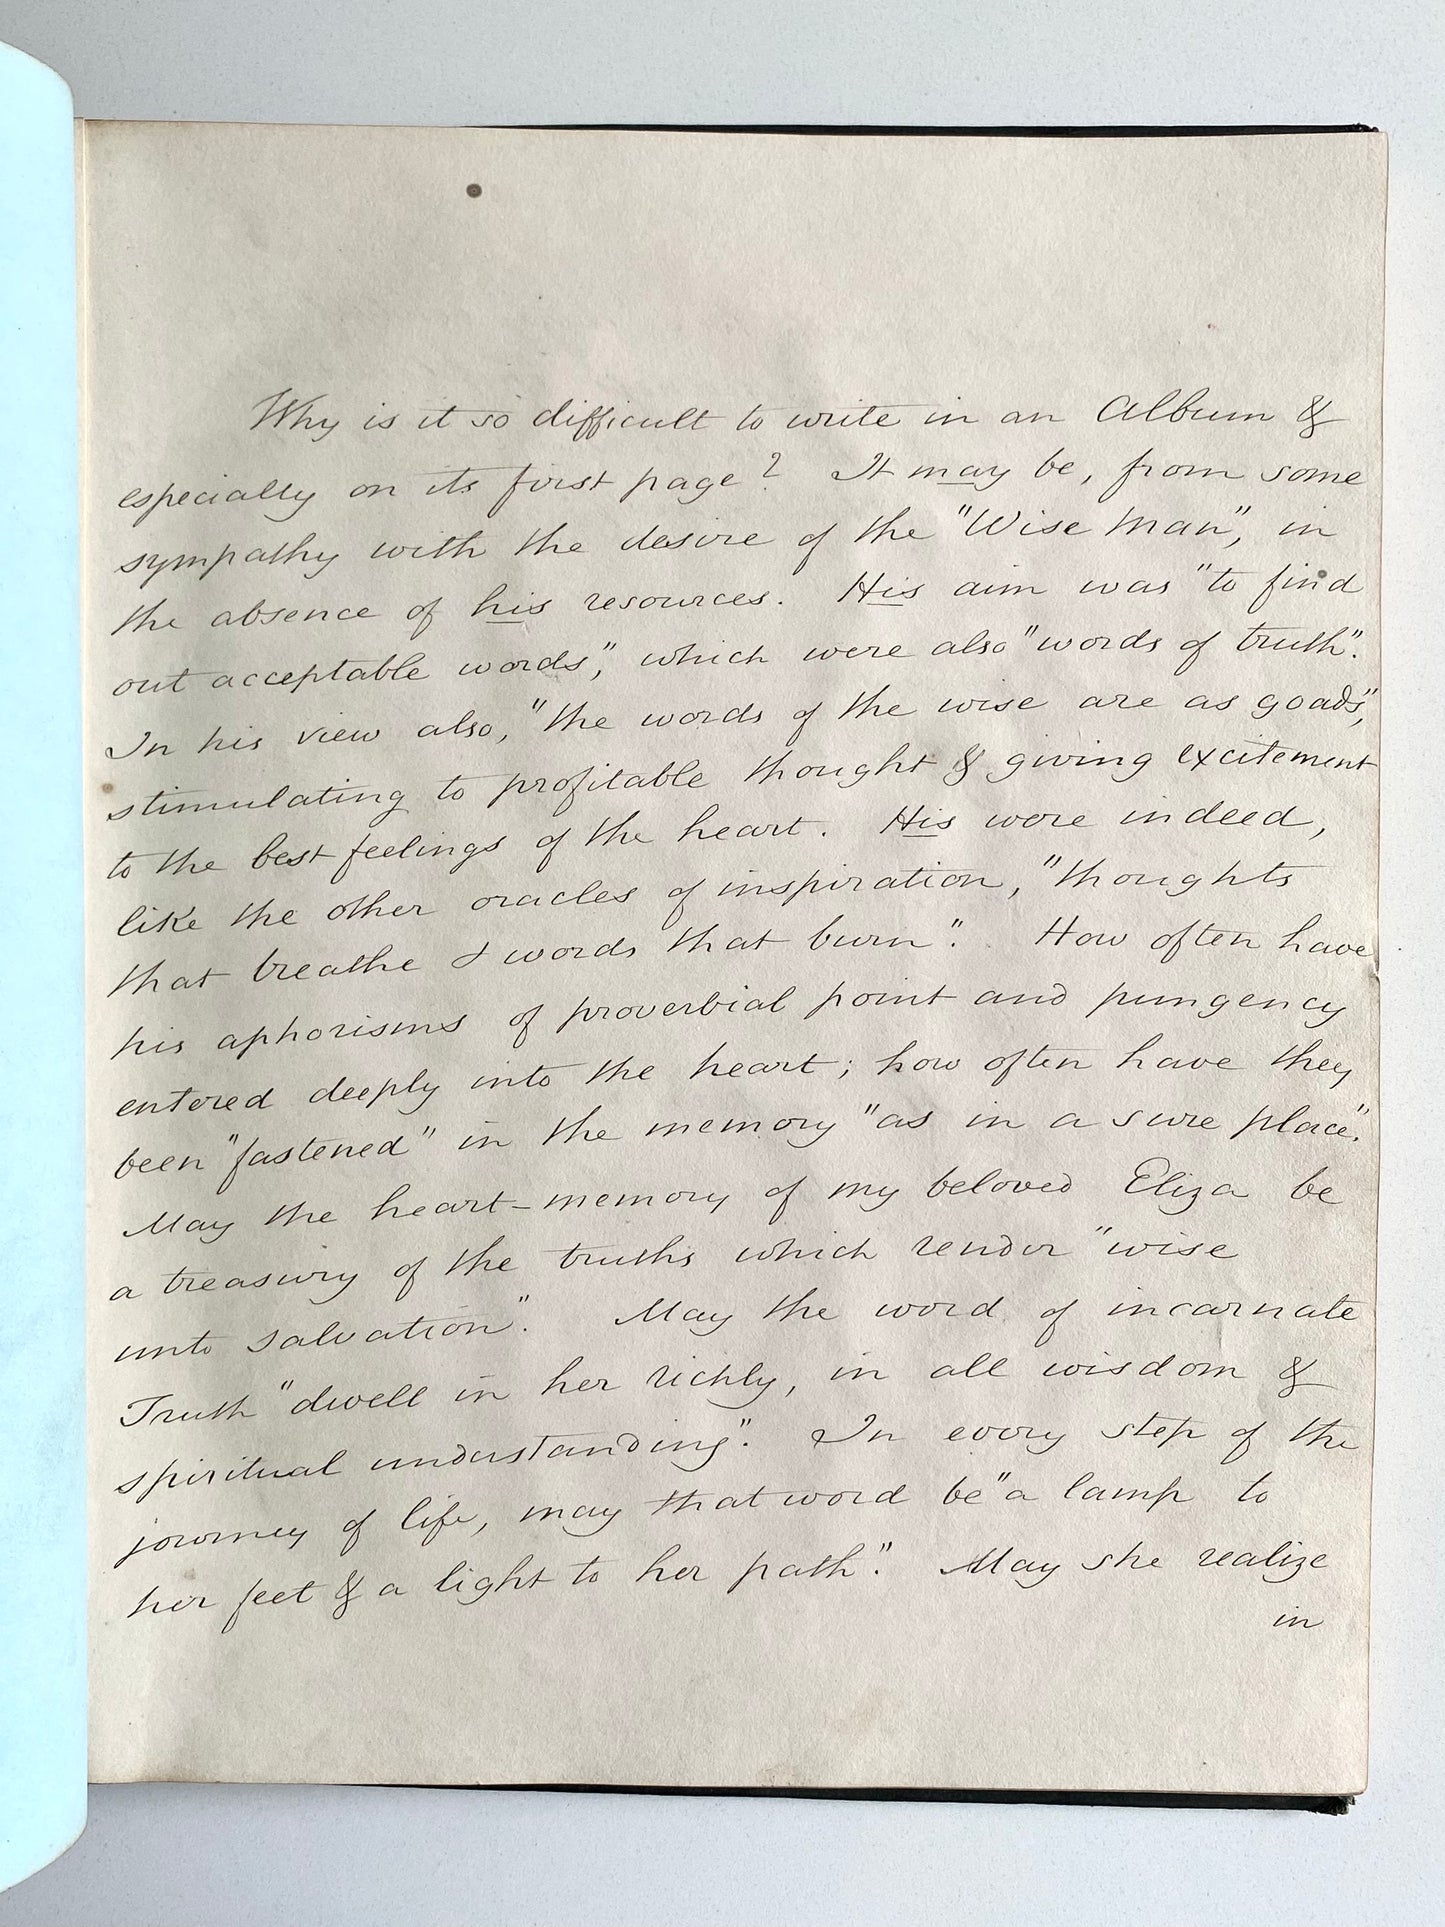 Why is it so difficult to write in an Album &
especially on its first page? It may be, from some
sympathy with the desire of the "Wise Man", in
the absence of his resources. His aim was "to find
out acceptable words", which were also "words of truth".
In his view also, "the words of the wise are as goads",
stimulating to profitable thought & giving excitement
to the best feelings of the heart. His were indeed,
like the other oracles of inspiration, "thoughts
that breathe & words that burn". How often have
his aphorisms of proverbial point and pungency
entered deeply into the heart; how often have they
been "fastened" in the memory "as in a sure place".
May the heart-memory of my beloved Eliza be
a treasury of the truths which render "wise
unto salvation". May the word of incarnate
Truth "dwell in her richly, in all wisdom &
spiritual understanding". In every step of the
journey of life, may that word be "a lamp to
her feet & a light to her path". May she realize
in